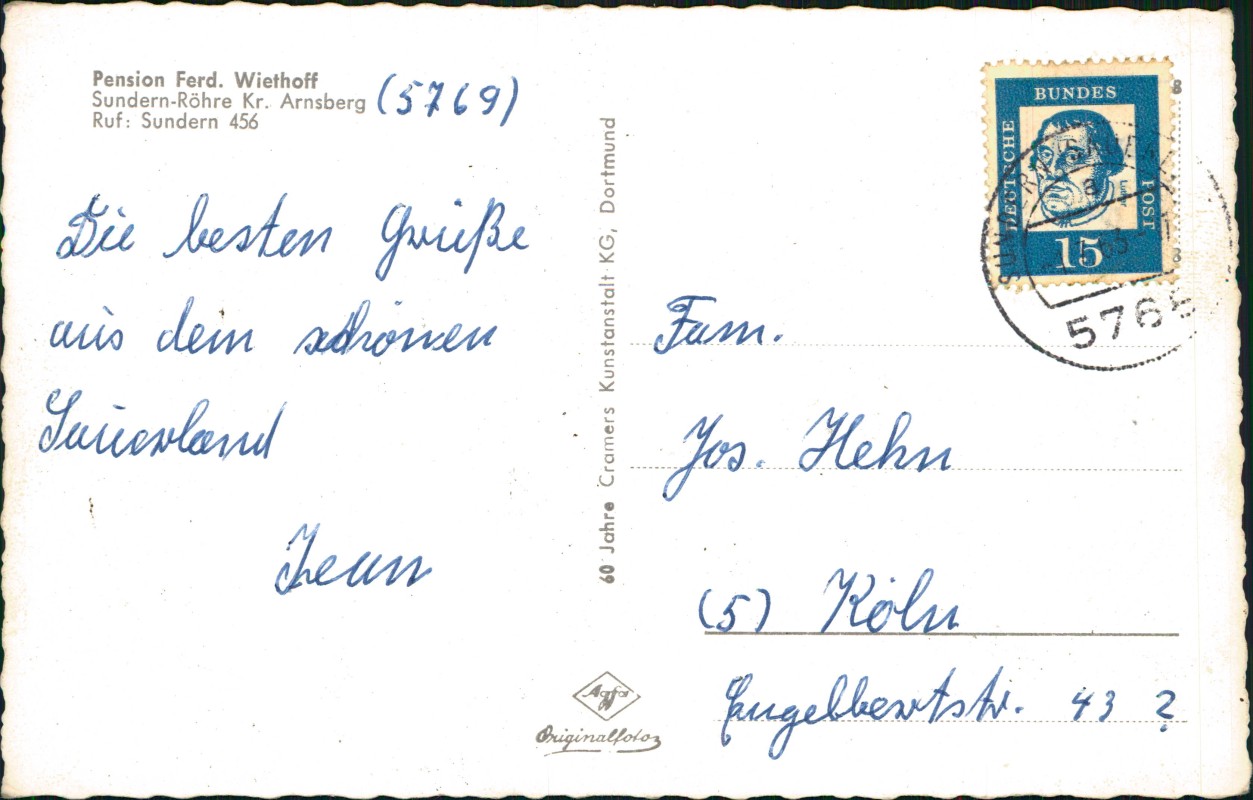 Pension Ferd. Wiethoff
Sundern-Röhre Kr. Arnsberg (5769)
Ruf: Sundern 456
Die besten Grüße
aus dem schönen
Sauerland
Jean
60 Jahre Cramers Kunstanstalt KG, Dortmund
Agfa
Originalfoto
DEUTSCHE
BUNDES
POST
Luther
15
SUNDERN
63
a
576
Fam.
Jos. Hehn
(5) Köln
Engelbertstr. 43 ?